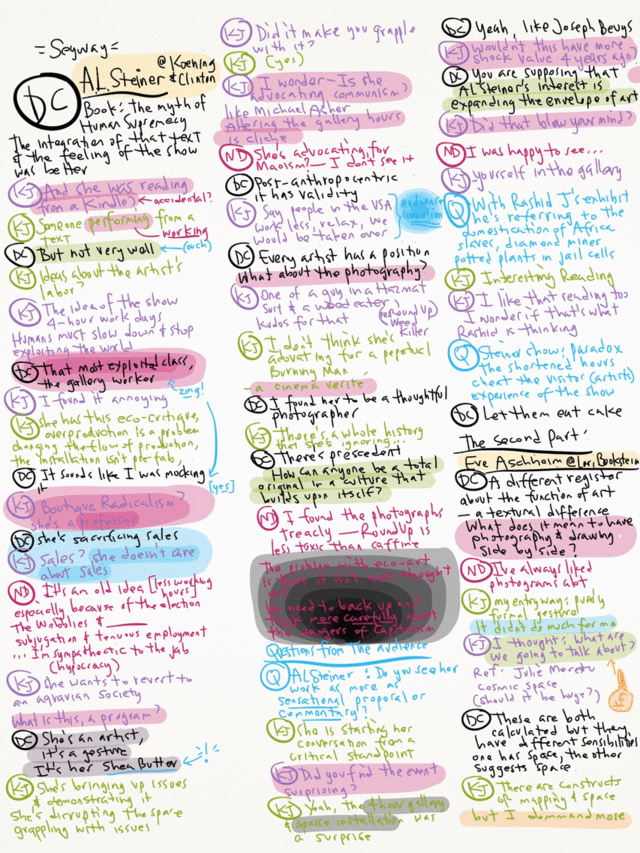 = Segway =
@ Koehling
AL Steiner & Clinton
DC
Book: the myth of
Human Supremacy
The integration of that text
& the feeling of the show
was better
KJ And she was reading
from a Kindle? ← accidental?
KJ Someone performing from a
text working
DC But not very well ← (ouch)
KJ Ideas about the artist's
labor?
KJ The idea of the show
4-hour work days
Humans must slow down & stop
exploiting the world
DC That most exploited class,
the gallery worker
zing!
KJ I found it annoying
KJ she has this eco-critique,
overproduction is a problem
changing the flow of production,
the installation isn't pre-fab,
DC It sounds like I was mocking
it [yes]
KJ Boutique Radicalism?
she's a professor
DC she's sacrificing sales
KJ Sales? she doesn't care
about sales
ND It's an old idea [less working
hours]
especially because of the election
The Wobblies &
subjugation & tenuous employment
... I'm sympathetic to the jab
(hypocracy)
KJ She wants to revert to
an agrarian society
What is this, a program?
DC She's an artist,
it's a gesture
It's her Shea Butter ← -!-
KJ She's bringing up issues
& demonstrating it
She's disrupting the space
grappling with issues
KJ Did it make you grapple
with it?
KJ (yes)
KJ I wonder - Is she
advocating communism?
like Michael Asher
Altering the gallery hours
is cliche
ND She's advocating for
Maoism? - I don't see it
DC Post-anthropocentric
it has validity
KJ Say people in the USA
work less, relax, we
would be taken over
DC Every artist has a position
What about the photography?
KJ One of a guy in a Hazmat
suit & a weed eater?
Kudos for that (roundup)
Weed
Killer
KJ I don't think she's
advocating for a perpetual
Burning Man
- a cinema verite
DC I found her to be a thoughtful
photographer
KJ There's a whole history
that she's ignoring...
DC There's prescedent
How can anyone be a total
original in a culture that
builds upon itself?
ND I found the photographs
treacly — RoundUp is
less toxic than caffine
The problem with eco-art
is that it isn't well thought
We need to back up and
think more carefully about
the dangers of Capitalism
Questions from the audience
Q AL Steiner: Do you see her
work as more as
sensational proposal or
commentary?
KJ She is starting her
conversation from a
critical standpoint
KJ Did you find the event
surprising?
KJ Yeah, the 4 hour gallery
& sparse installation was
a surprise
DC Yeah, like Joseph Beuys
KJ Wouldn't this have more
shock value 4 years ago?
DC You are supposing that
AL Steiner's interest is
expanding the envelope of art
KJ Did that blow your mind?
ND I was happy to see...
KJ yourself in the gallery
Q With Rashid J's exhibit
he's referring to the
domestication of Africa
slaves, diamond miner
potted plants in jail cells
KJ Interesting Reading
KJ I like that reading too
I wonder if that's what
Rashid is thinking
Q Steiner show: paradox
the shortened hours
cheat the visitor (artists)
experience of the show
DC Let them eat cake
The Second Part:
Eve Aschheim @ Lori Bookstein
DC A different register
about the function of art
- a textural difference
What does it mean to have
photography & drawing
side by side?
ND I've always liked
photograms
KJ my entry was purely
formal gesture
It didn't do much for me
KJ I thought, what are
we going to talk about?
Ref: Julie Meretu
cosmic space
(should it be huge?)
DC These are both
calculated but they
have different sensibilities
one has space, the other
suggests space
KJ There are constructs
of mapping & space
but I demand more